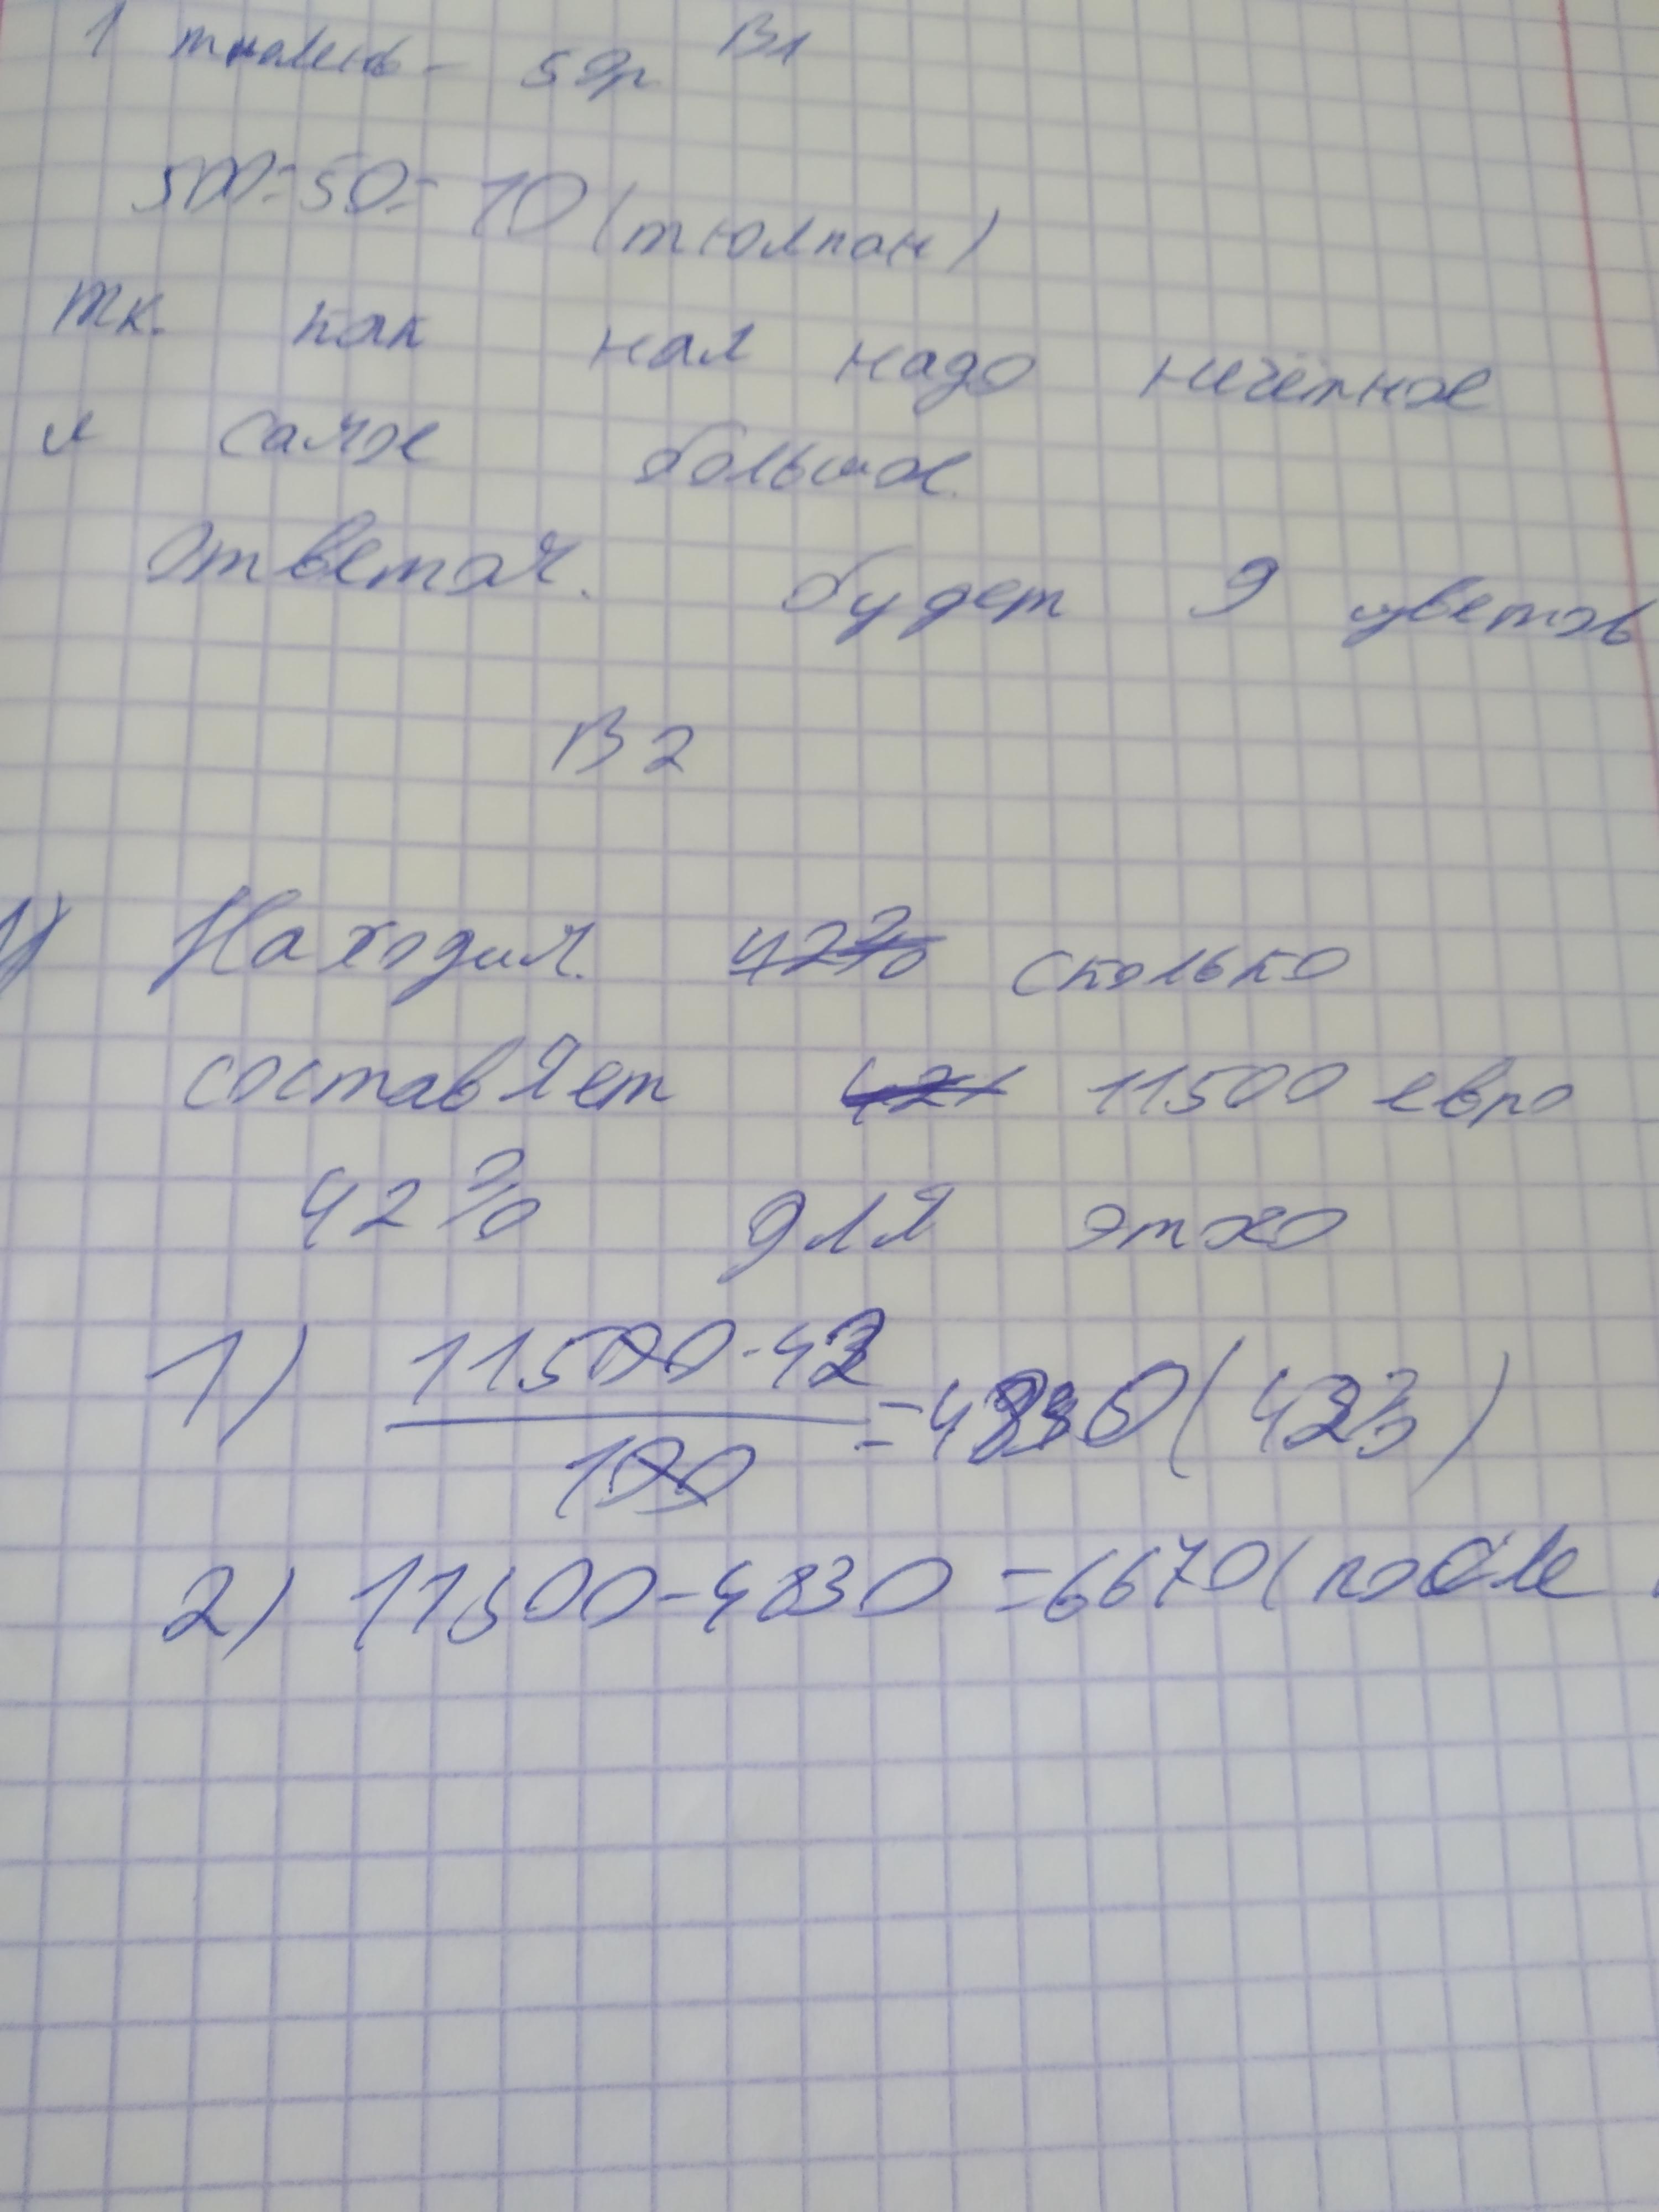 В1
1 тюлень - 50р
500:50=10(тюлпан)
тк. как нам надо нечётное
и самое большое
ответом. будет 9 цветов
В2
1) Находим. 42% сколько
составяет 42% 11500 евро
42% для этого
1) 11500·42/100=4830(42%)
2) 11500-4830=6670(после